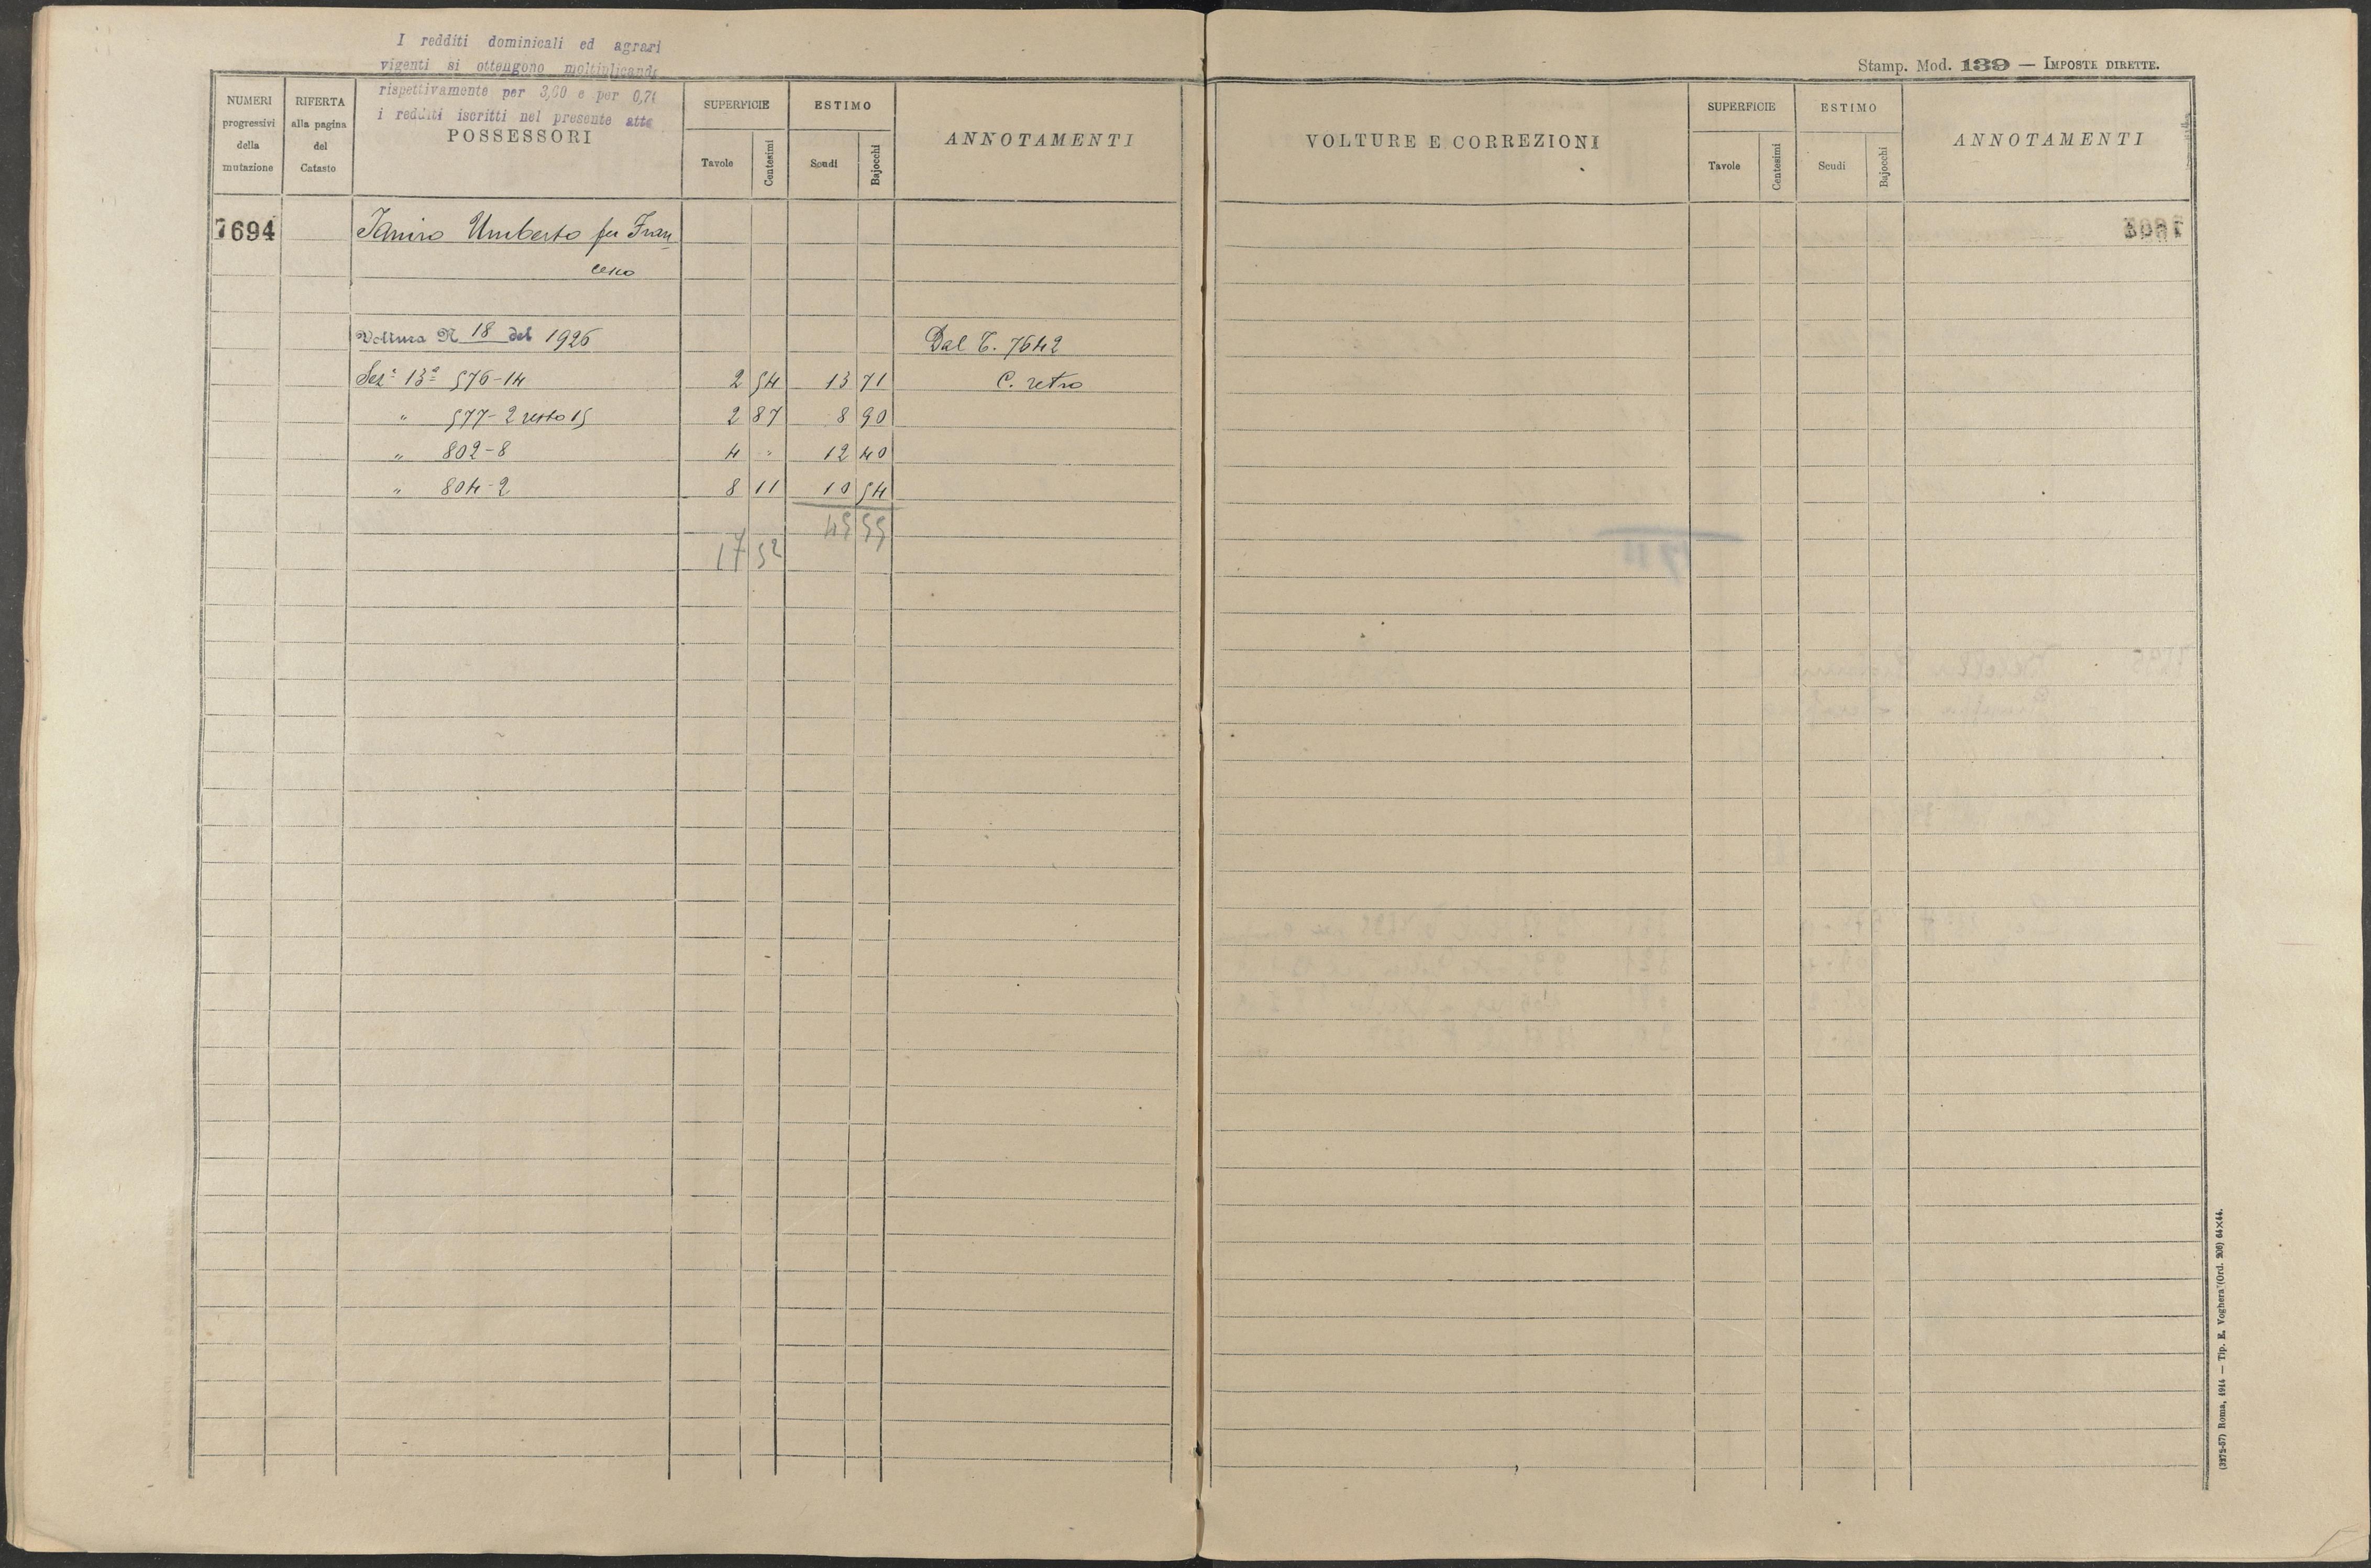 I redditi dominicali ed agrari
vigenti si ottengono moltiplicando
rispettivamente per 3,60 e per 0,7
i redditi iscritti nel presente atto
NUMERI progressivi della mutazione
RIFERTA alla pagina del Catasto
POSSESSORI
SUPERFICIE
Tavole Centesimi
ESTIMO
Scudi Bajocchi
ANNOTAMENTI
7694 Ianiro Umberto fu Fran
cesco
Voltura N 18 del 1926 Dal T. 7642
Sez.e 13a 576-14 2 54 13 71 C. retro
" 577-2 resto 15 2 87 8 90
" 802-8 4 " 12 40
" 804-2 8 11 10 54
45 55
17 52
Stamp. Mod. 139 — IMPOSTE DIRETTE.
VOLTURE E CORREZIONI
SUPERFICIE
Tavole Centesimi
ESTIMO
Scudi Bajocchi
ANNOTAMENTI
Roma, 1914 — Tip. E. Voghera (Ord. 206) 64×44.